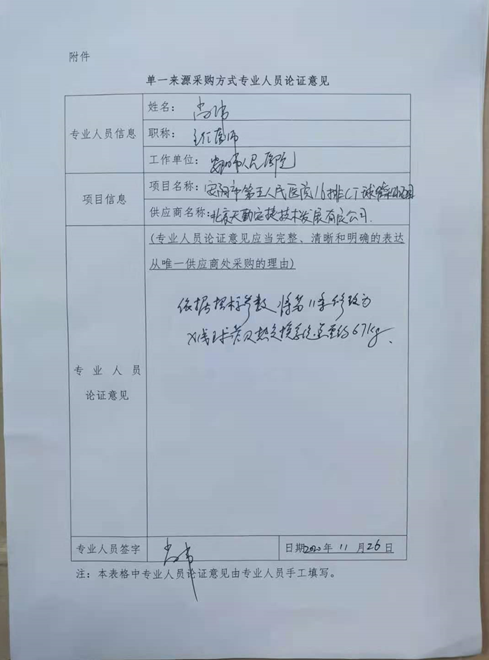 附件
单一来源采购方式专业人员论证意见
专业人员信息
姓名：
职称：
工作单位：安阳市人民医院
项目信息
项目名称：安阳市第五人民医院16排CT球管
供应商名称：北京天勤宏捷技术发展有限公司
（专业人员论证意见应当完整、清晰和明确的表达
从唯一供应商处采购的理由）
专业人员
论证意见
依据招标参数 将第11条修改为
X线球管及热交换系统总重约67kg.
专业人员签字
日期2020年11月26日
注：本表格中专业人员论证意见由专业人员手工填写。